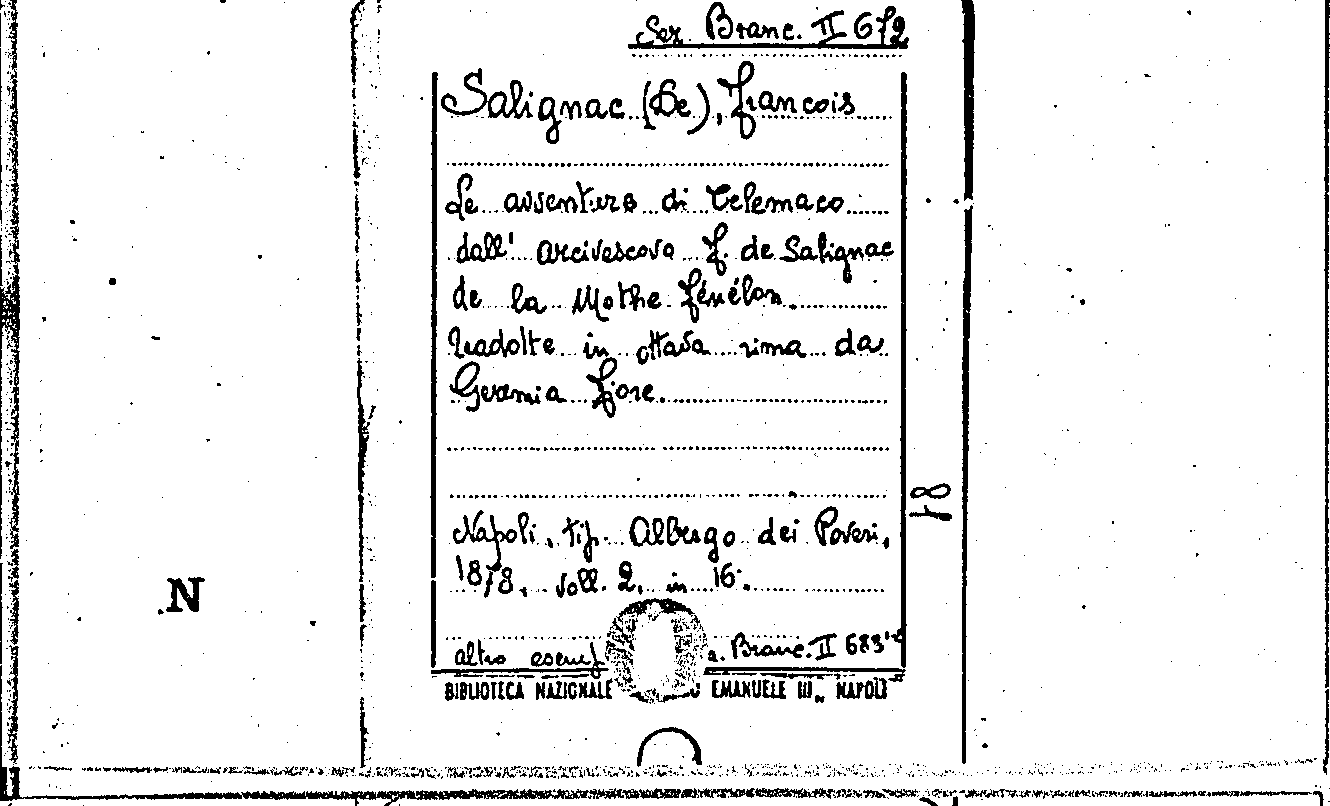 Sez Branc. II G 72
Salignac (De), Francois
Le avventure di Telemaco
dall' arcivescovo F. de Salignac
de la Mothe Fénélon.
Tradotte in ottava rima da
Geremia Fiore.
78
Napoli, tip. Albergo dei Poveri,
1878. voll. 2. in 16°.
N
altro esemp Branc. II G 83
BIBLIOTECA NAZIONALE EMANUELE III„ NAPOLI